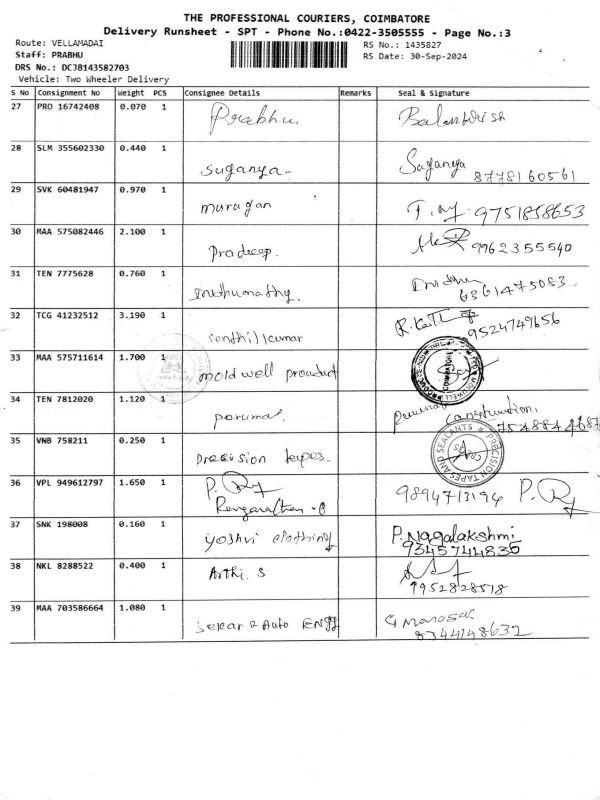 THE PROFESSIONAL COURIERS, COIMBATORE
Delivery Runsheet - SPT - Phone No.:0422-3505555 - Page No.:3
Route: VELLAMADAI RS No.: 1435827
Staff: PRABHU RS Date: 30-Sep-2024
DRS No.: DCJB143582703
Vehicle: Two Wheeler Delivery
S No Consignment No Weight PCS Consignee Details Remarks Seal & Signature
27 PRO 16742408 0.070 1
Prabhu
28 SLM 355602330 0.440 1
Suganya. Suganya
8778160561
29 SVK 60481947 0.970 1
murugan 9751858653
30 MAA 575082446 2.100 1
Pradeep. 9962355540
31 TEN 7775628 0.760 1
6361475083
32 TCG 41232512 3.190 1
Senthil kumar 9524749656
33 MAA 575711614 1.700 1
mold well product
34 TEN 7812020 1.120 1
perumal. Construction.
35 VNB 758211 0.250 1
precision tapes. PRECISION TAPES AND SEALANTS
36 VPL 949612797 1.650 1
9894713194
37 SNK 198008 0.160 1
yoshvi clothing P. Nagalakshmi
9345744836
38 NKL 8288522 0.400 1
Arthi. S
9952828518
39 MAA 703586664 1.080 1
Sekar & Auto ENGG
8344148632